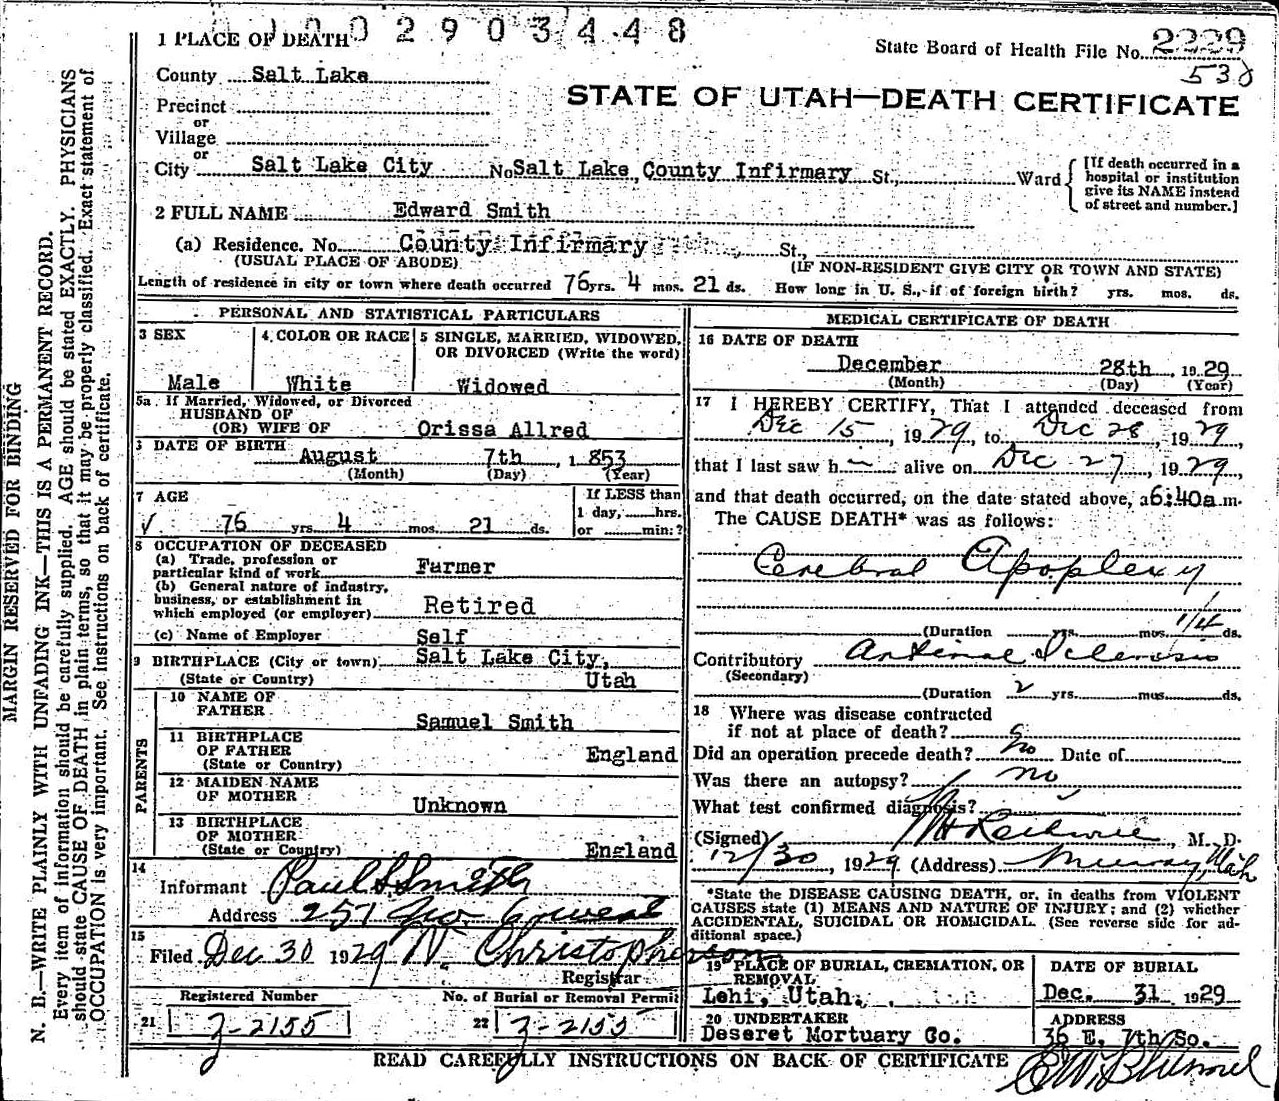 1 0 0 2 9 0 3 4 4 8
1 PLACE OF DEATH
State Board of Health File No. 2229
530
County Salt Lake
STATE OF UTAH—DEATH CERTIFICATE
Precinct
or
Village
or
City Salt Lake City No. Salt Lake County Infirmary St., Ward
[If death occurred in a
hospital or institution
give its NAME instead
of street and number.]
2 FULL NAME Edward Smith
(a) Residence. No. County Infirmary St.,
(USUAL PLACE OF ABODE) (IF NON-RESIDENT GIVE CITY OR TOWN AND STATE)
Length of residence in city or town where death occurred 76 yrs. 4 mos. 21 ds. How long in U. S., if of foreign birth? yrs. mos. ds.
PERSONAL AND STATISTICAL PARTICULARS
3 SEX
Male
4 COLOR OR RACE
White
5 SINGLE, MARRIED, WIDOWED,
OR DIVORCED (Write the word)
Widowed
5a If Married, Widowed, or Divorced
HUSBAND OF
(OR) WIFE OF Orissa Allred
DATE OF BIRTH
August 7th, 1853
(Month) (Day) (Year)
7 AGE
76 yrs. 4 mos. 21 ds.
If LESS than
1 day, hrs.
or min.?
8 OCCUPATION OF DECEASED
(a) Trade, profession or
particular kind of work Farmer
(b) General nature of industry,
business, or establishment in
which employed (or employer) Retired
(c) Name of Employer Self
9 BIRTHPLACE (City or town) Salt Lake City,
(State or Country) Utah
PARENTS
10 NAME OF
FATHER Samuel Smith
11 BIRTHPLACE
OF FATHER England
(State or Country)
12 MAIDEN NAME
OF MOTHER Unknown
13 BIRTHPLACE
OF MOTHER
(State or Country) England
14
Informant Paul S Smith
Address 257
15
Filed Dec 30 1929 N. Christopherson
Registrar
Registered Number No. of Burial or Removal Permit
21 2-2155 22 2-2155
MEDICAL CERTIFICATE OF DEATH
16 DATE OF DEATH
December 28th, 1929
(Month) (Day) (Year)
17 I HEREBY CERTIFY, That I attended deceased from
Dec 15, 1929, to Dec 28, 1929,
that I last saw him alive on Dec 27, 1929,
and that death occurred, on the date stated above, a 6:40a.m.
The CAUSE DEATH* was as follows:
Cerebral Apoplexy
(Duration yrs. mos. 14 ds.
Contributory Arterial Sclerosis
(Secondary)
(Duration 2 yrs. mos. ds.
18 Where was disease contracted
if not at place of death?
Did an operation precede death? no Date of
Was there an autopsy? no
What test confirmed diagnosis?
(Signed) , M. D.
12/30, 1929 (Address) Murray, Utah
*State the DISEASE CAUSING DEATH, or, in deaths from VIOLENT
CAUSES state (1) MEANS AND NATURE OF INJURY; and (2) whether
ACCIDENTAL, SUICIDAL OR HOMICIDAL. (See reverse side for ad-
ditional space.)
19 PLACE OF BURIAL, CREMATION, OR
REMOVAL
Lehi, Utah.
DATE OF BURIAL
Dec. 31 1929
20 UNDERTAKER
Deseret Mortuary Co.
ADDRESS
36 E. 7th So.
READ CAREFULLY INSTRUCTIONS ON BACK OF CERTIFICATE
MARGIN RESERVED FOR BINDING
N. B.—WRITE PLAINLY WITH UNFADING INK—THIS IS A PERMANENT RECORD.
Every item of information should be carefully supplied. AGE should be stated EXACTLY. PHYSICIANS
should state CAUSE OF DEATH in plain terms, so that it may be properly classified. Exact statement of
OCCUPATION is very important. See instructions on back of certificate.